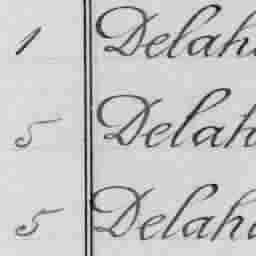 1 Delah
5 Delah
5 Delah